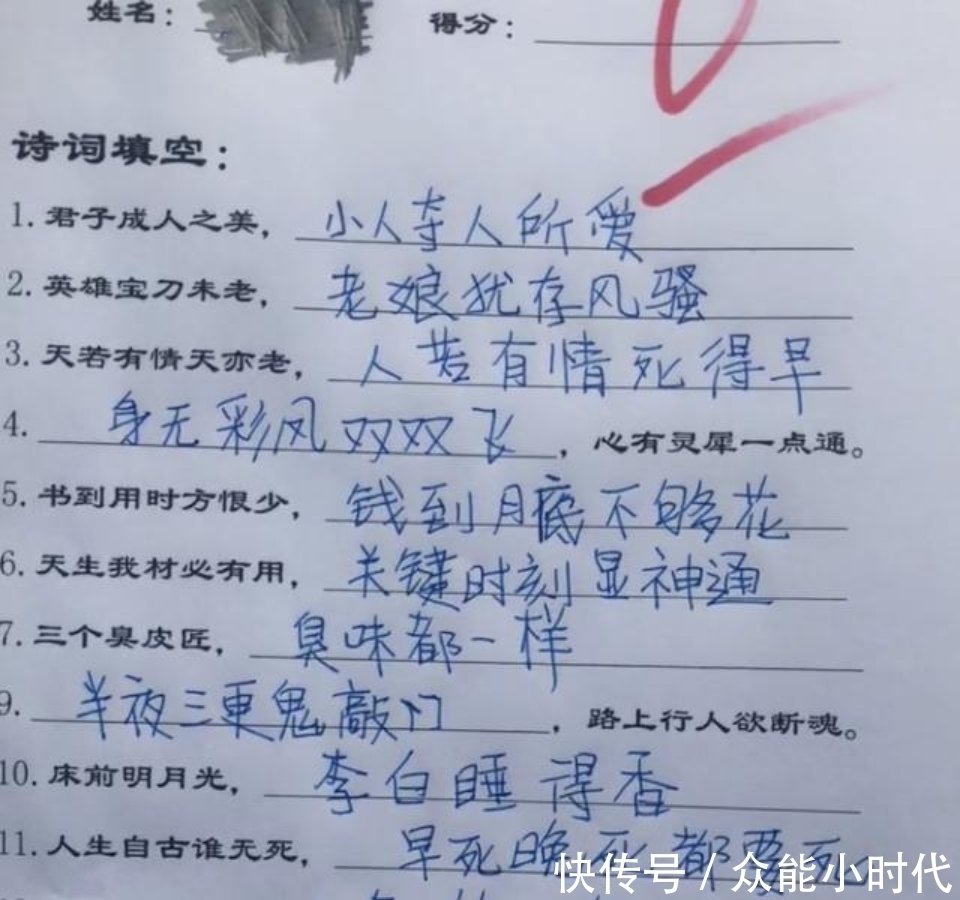 姓名： 得分：
诗词填空：
1. 君子成人之美，小人夺人所爱
2. 英雄宝刀未老，老娘犹存风骚
3. 天若有情天亦老，人若有情死得早
4. 身无彩凤双双飞，心有灵犀一点通。
5. 书到用时方恨少，钱到月底不够花
6. 天生我材必有用，关键时刻显神通
7. 三个臭皮匠，臭味都一样
9. 半夜三更鬼敲门，路上行人欲断魂。
10. 床前明月光，李白睡得香
11. 人生自古谁无死，早死晚死都要死
快传号 / 众能小时代